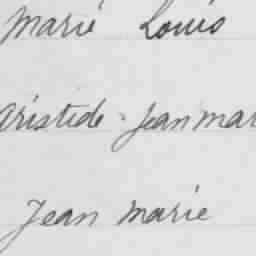 Marie Louis
Aristide Jean mar
Jean Marie